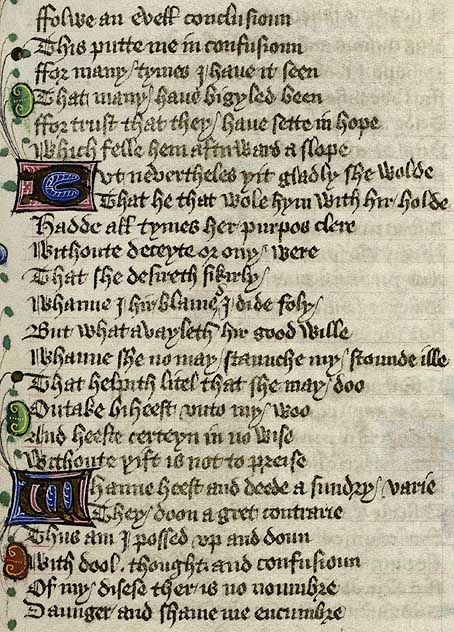 ffolwe an evell conclusioun
This putte me in confusioun
ffor many tymes I have it seen
That many have bigyled been
ffor trust that they have sette in hope
Which felle hem aftirward a slope
But nevertheles yit gladly she wolde
That he that wole hym with hir holde
Hadde all tymes her purpos clere
Withoute deceyte or ony were
That she desireth sikirly
Whanne I hir blame I dide foly
But what avayleth hir good wille
Whanne she ne may staunche my stounde ille
That helpith litel that she may doo
Outake biheest unto my woo
And heeste certeyn in no wise
Withoute yift is not to preise
Whanne heest and deede a sundry varie
They doon a gret contrarie
Thus am I possed up and doun
With dool, thought and confusioun
Of my disese ther is no noumbre
Daunger and shame me encumbre